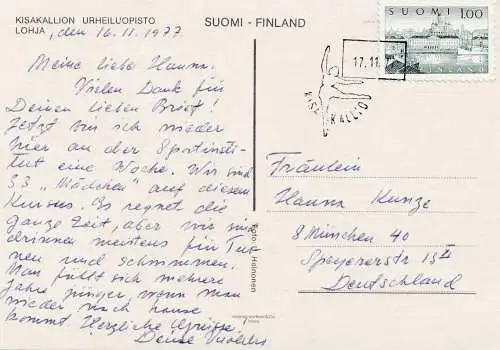 KISAKALLION URHEILUOPISTO
LOHJA, den 16.11.1977
SUOMI - FINLAND
Meine liebe Hanna.
Vielen Dank für
Deinen lieben Brief!
Jetzt bin ich wieder
hier an der Sportinsti-
tut eine Woche. Wir sind
33 „Mädchen" auf diesem
Kursus. Es regnet die
ganze Zeit, aber wir sind
drinnen meistens für Tur-
nen und schwimmen.
Man fühlt sich mehrere
Jahre jünger, wenn man
wieder nach hause
kommt. Herzliche Grüsse
Deine
Foto: J. Heinonen
SUOMI 1.00
FINLAND
17.11.
KISAKALLIO
Fräulein
Hanna Kunze
8 München 40
Speyererstr 15 II
Deutschland